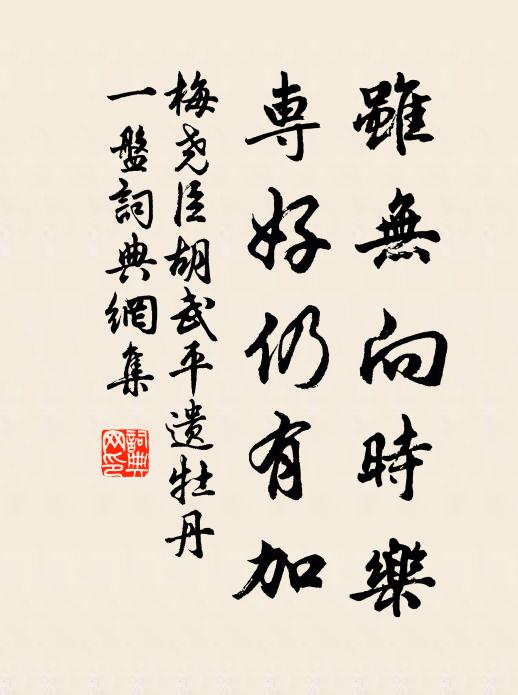 雖無向時樂
専好仍有加
梅尧臣胡武平遗牡丹
一盤詞典網集
詞典网印